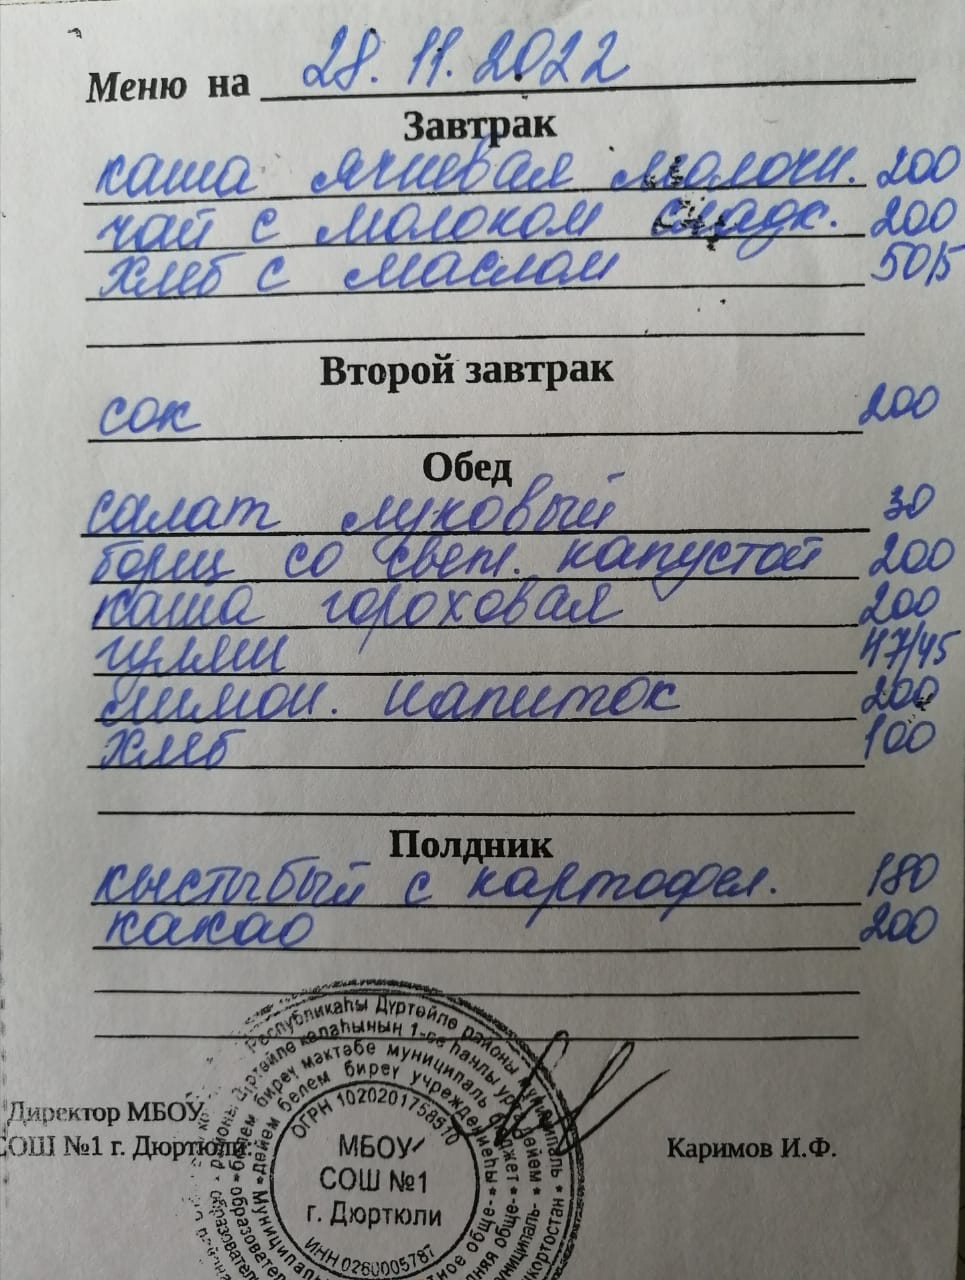 Меню на 28.11.2022
Завтрак
каша ячневая молочн. 200
чай с молоком сладк. 200
хлеб с маслом 50/5
Второй завтрак
сок 200
Обед
салат луковый 30
борщ со свеж. капустой 200
каша гороховая 200
гуляш 47/45
лимон. напиток 200
хлеб 100
Полдник
кыстыбый с картофел. 180
какао 200
Директор МБОУ
СОШ №1 г. Дюртюли:
Каримов И.Ф.
Республикаһы Дүртөйлө районы
Дүртөйлө ҡалаһының 1-се һанлы урта дөйөм
белем биреү мәктәбе муниципаль бюджет
дөйөм белем биреү учреждениеһы
ОГРН 1020201758510
МБОУ
СОШ №1
г. Дюртюли
ИНН 0260005787